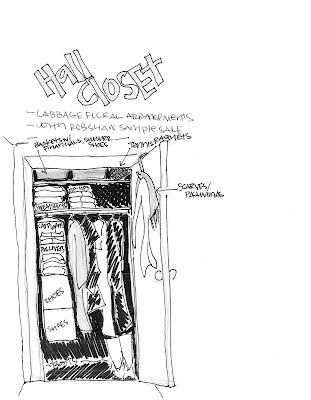 Hall
Closet
- CABBAGE FLORAL ARRANGEMENTS
- JOHN ROBSHAW SAMPLE SALE
BASKETS W/
FINANCIALS, SUMMER
SHOES
TENNIS RAQUETS
SCARVES/
PASHMINAS
SWEATERS
CARDIGANS
PULLOVER
SHOES
SHOES